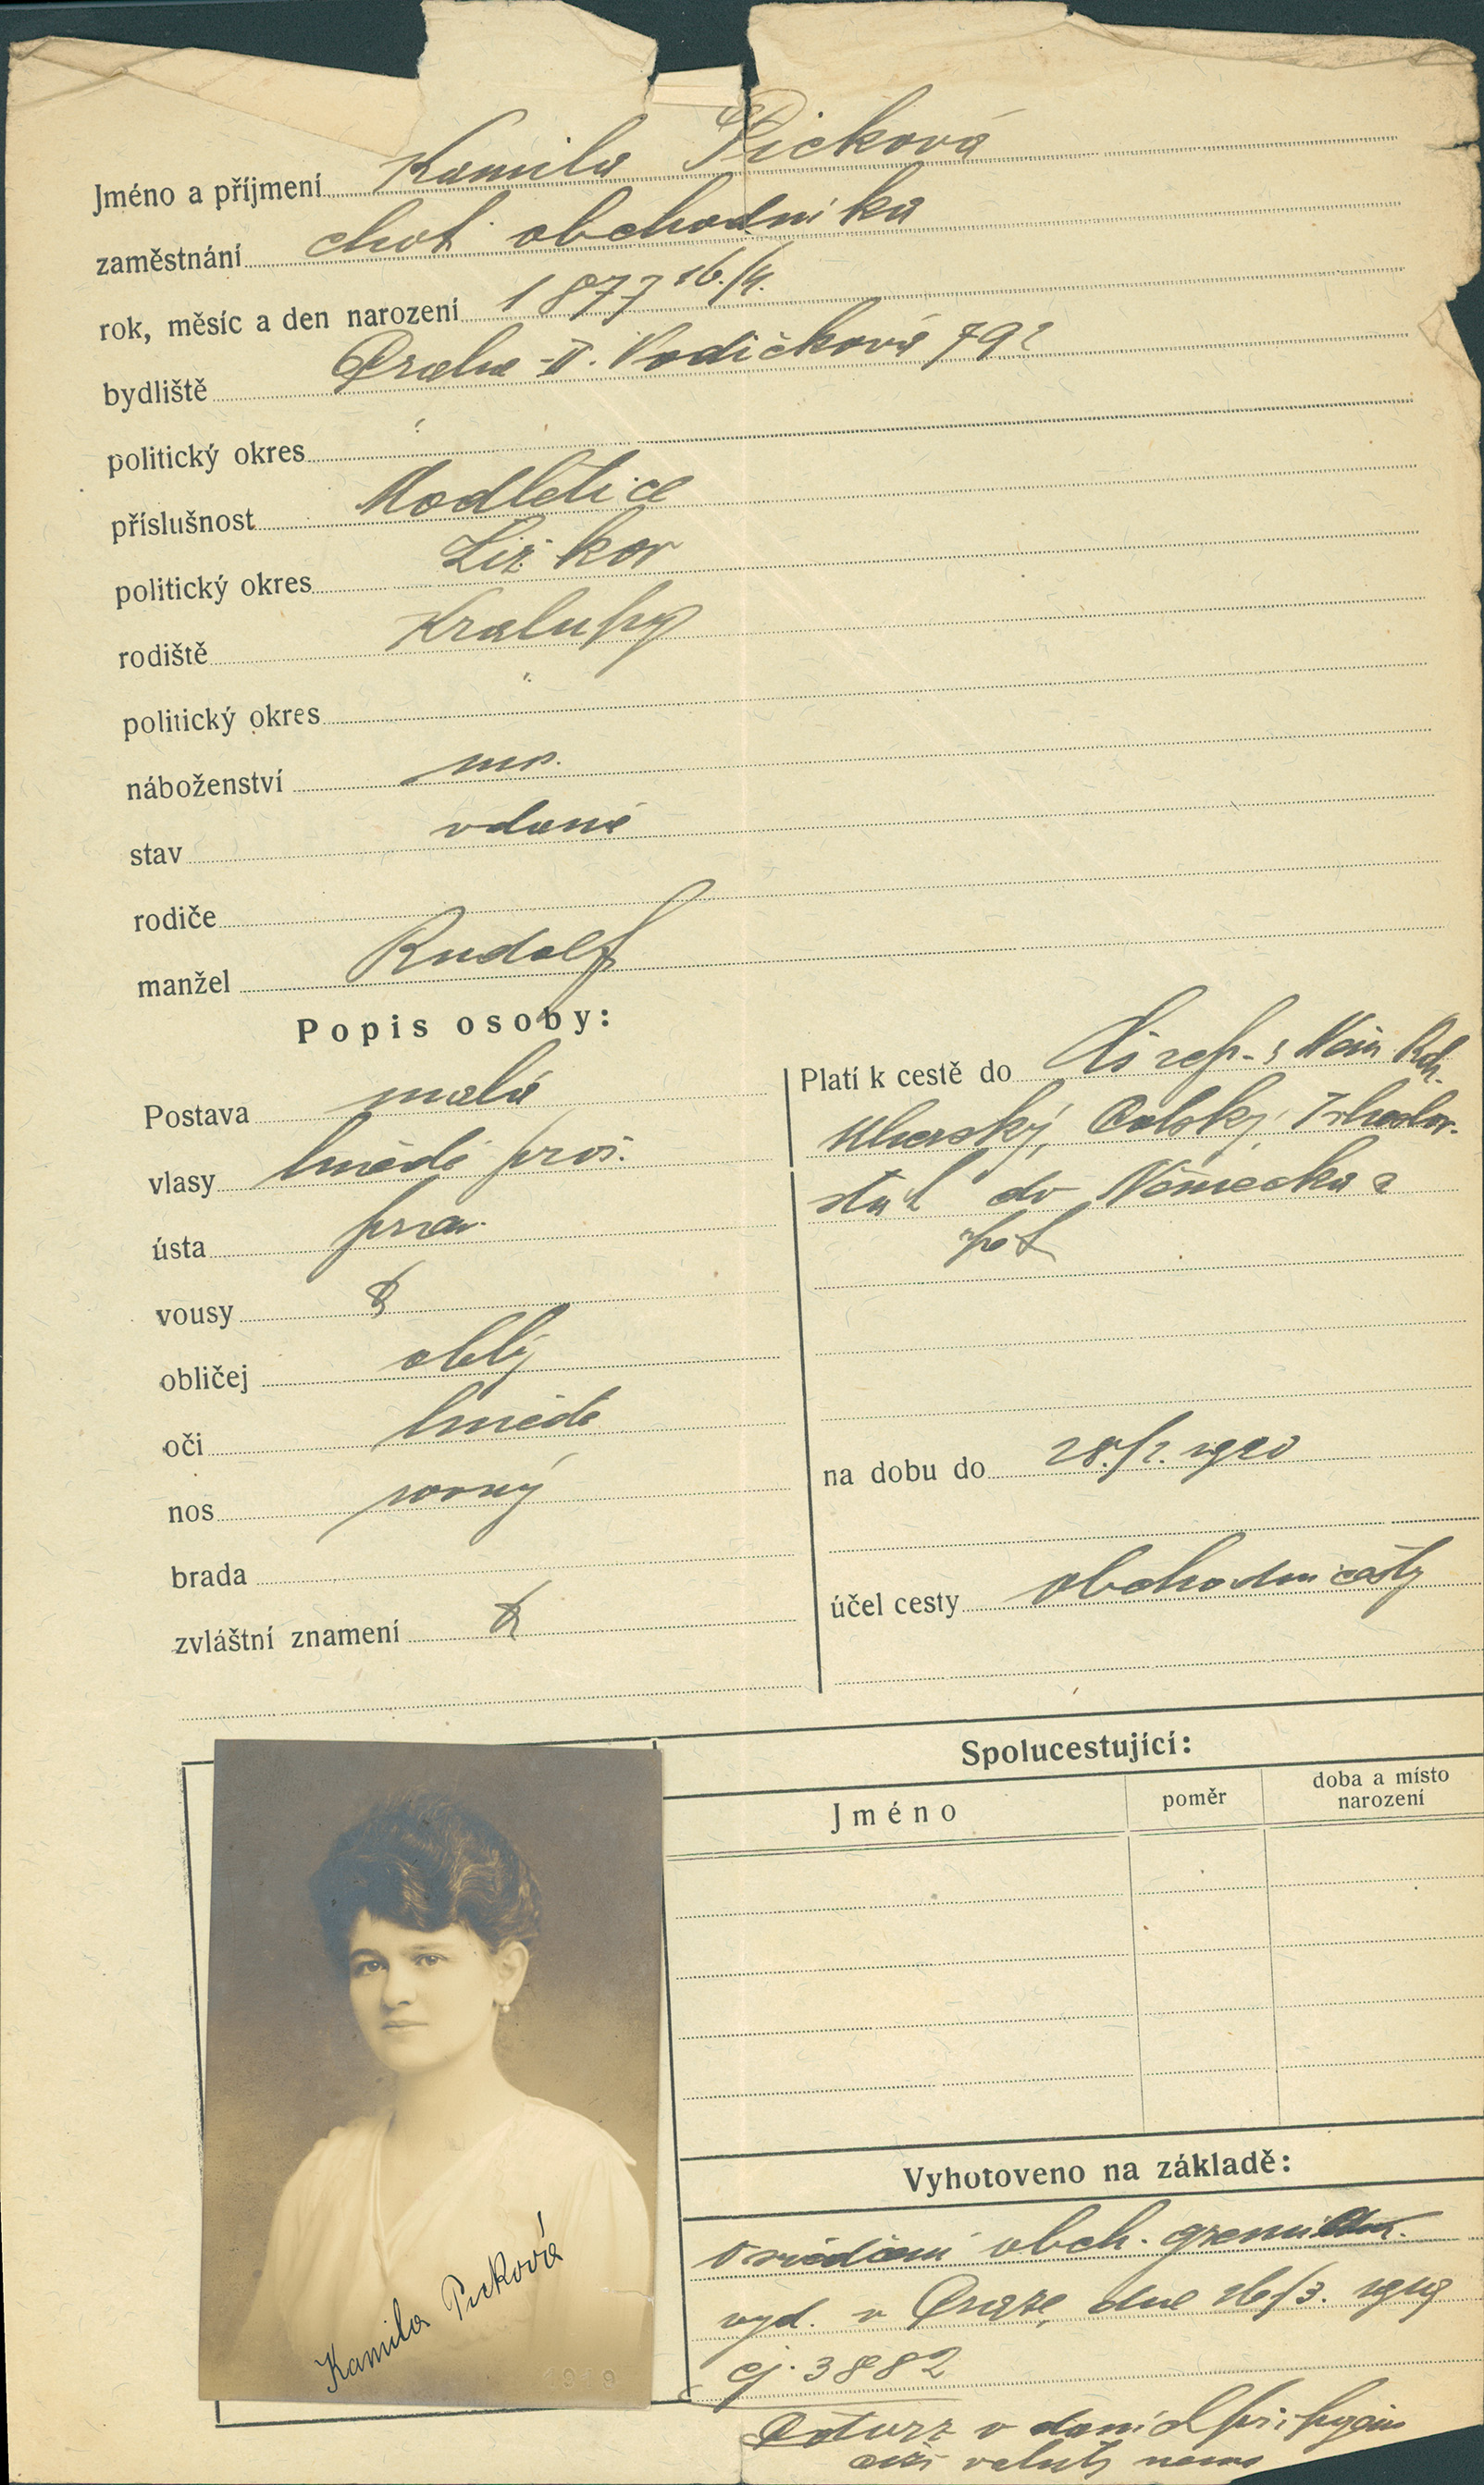 Jméno a příjmení Kamila Picková
zaměstnání choť obchodníka
rok, měsíc a den narození 1877 16./4.
bydliště Praha-II. Vodičkova 792
politický okres
příslušnost Modletice
politický okres Žižkov
rodiště Kralupy
politický okres
náboženství mos.
stav vdaná
rodiče
manžel Rudolf
Popis osoby:
Postava malá
vlasy hnědé proš.
ústa prav.
vousy
obličej oblý
oči hnědé
nos rovný
brada
zvláštní znamení
Platí k cestě do Čs rep. s Něm. Rak.
Uherský, Polský, Jihoslov.
stát do Německa a
zpět
na dobu do 28./2. 1920
účel cesty obchodní cesty
Spolucestující:
Jméno poměr doba a místo narození
Kamila Picková
1919
Vyhotoveno na základě:
Osvědčení obch. gremia
vyd. v Praze, dne 16/3. 1919
čj. 3882
v daní
valut nemá